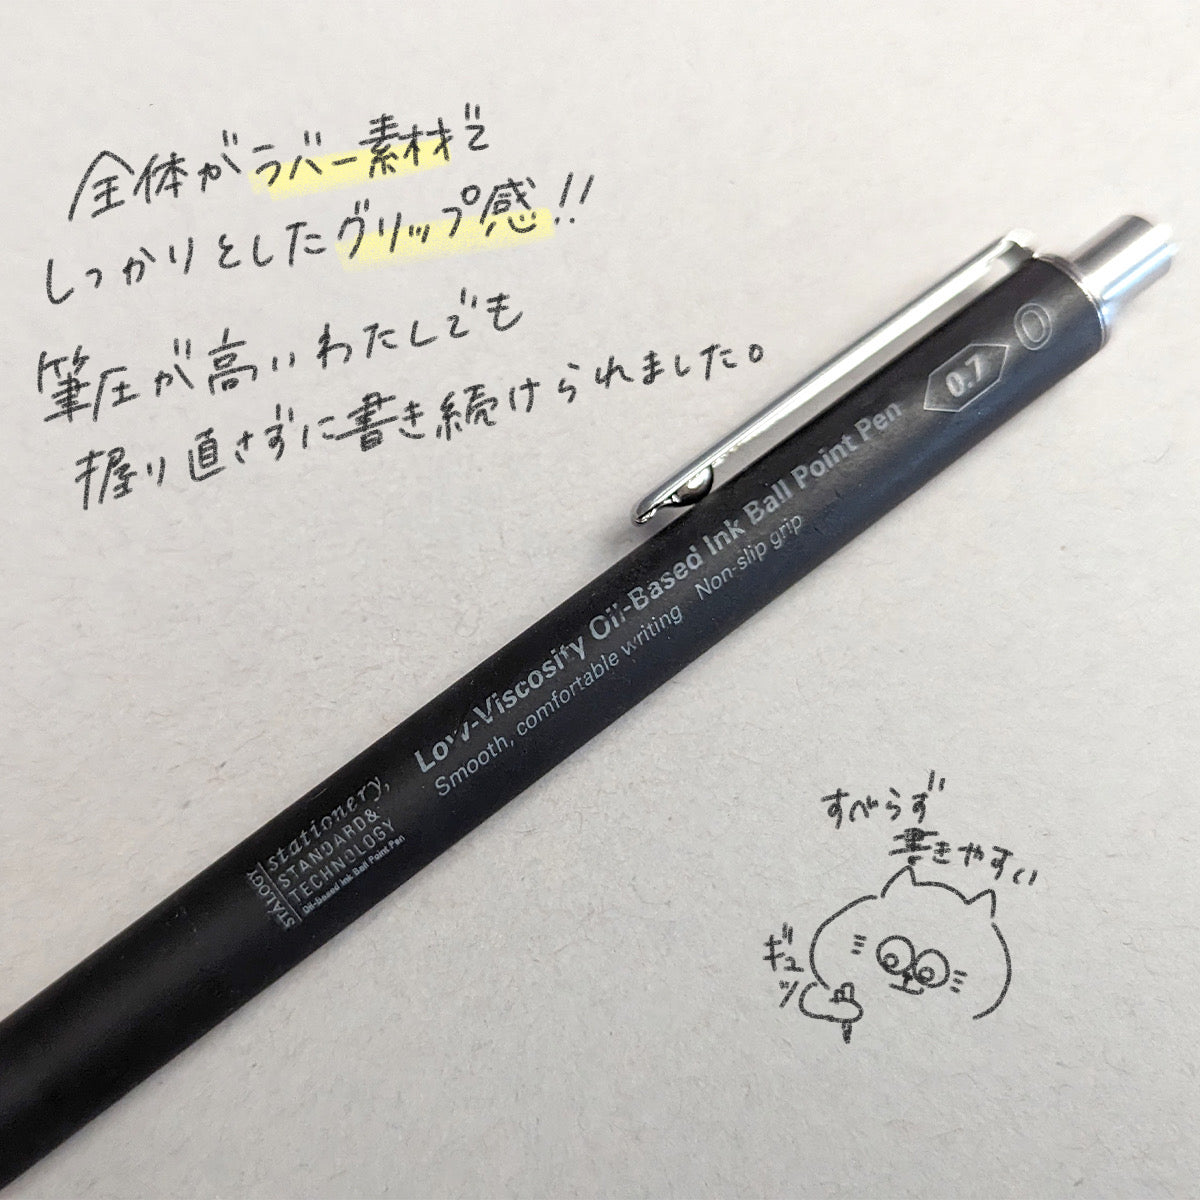 全体がラバー素材で
しっかりとしたグリップ感!!
筆圧が高いわたしでも
握り直さずに書き続けられました。
0.7
Low-Viscosity Oil-Based Ink Ball Point Pen
Smooth, comfortable writing Non-slip grip
STALOGY
stationery,
STANDARD&
TECHNOLOGY
Oil-Based Ink Ball Point Pen
すべらず
書きやすい
ギュッ